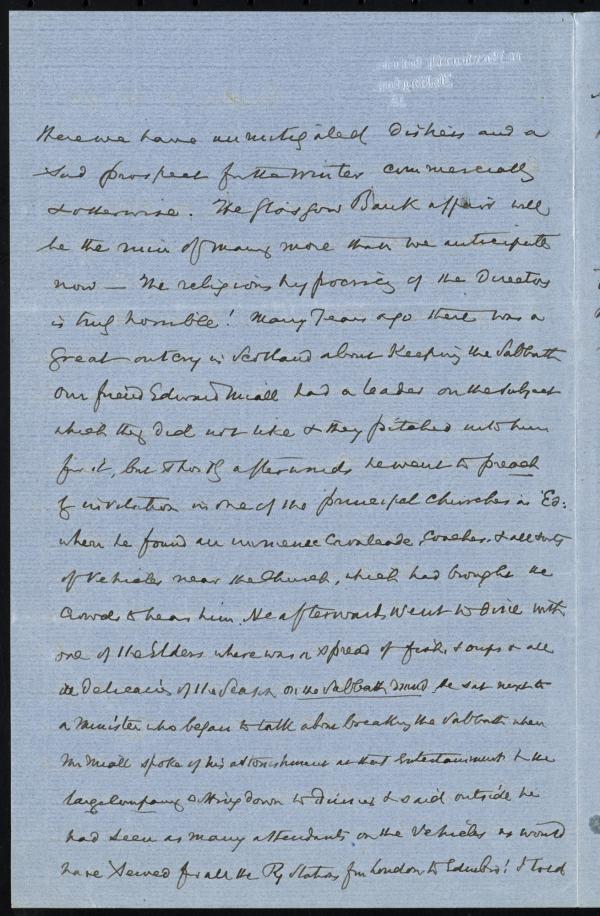 Here we have unmitigated distress and a
sad prospect for the Winter commercially
& otherwise. The Glasgow Bank affair will
be the ruin of many more than we anticipate
now — The religious hypocrisy of the Directors
is truly horrible! Many Years ago there was a
great outcry in Scotland about Keeping the Sabbath
Our friend Edward Miall had a leader on the subject
which they did not like & they pitched into him
for it, but shortly afterwards he went to preach
by invitation in one of the principal Churches in Ed:
when he found an immense Cavalcade, Coaches, & all sorts
of Vehicles near the Church, which had brought the
Crowds to hear him. He afterwards went to dine with
one of the Elders where was a spread of fish, soups & all
the delicacies of the Season on the Sabbath, he sat next to
a Minister who began to talk about breaking the Sabbath when
Mr Miall spoke of his astonishment at that Entertainment & the
large Company sitting down to dinner & said outside he
had seen as many attendants on the Vehicles as would
have served for all the Ry Stations fm London to Edinbro'! I told